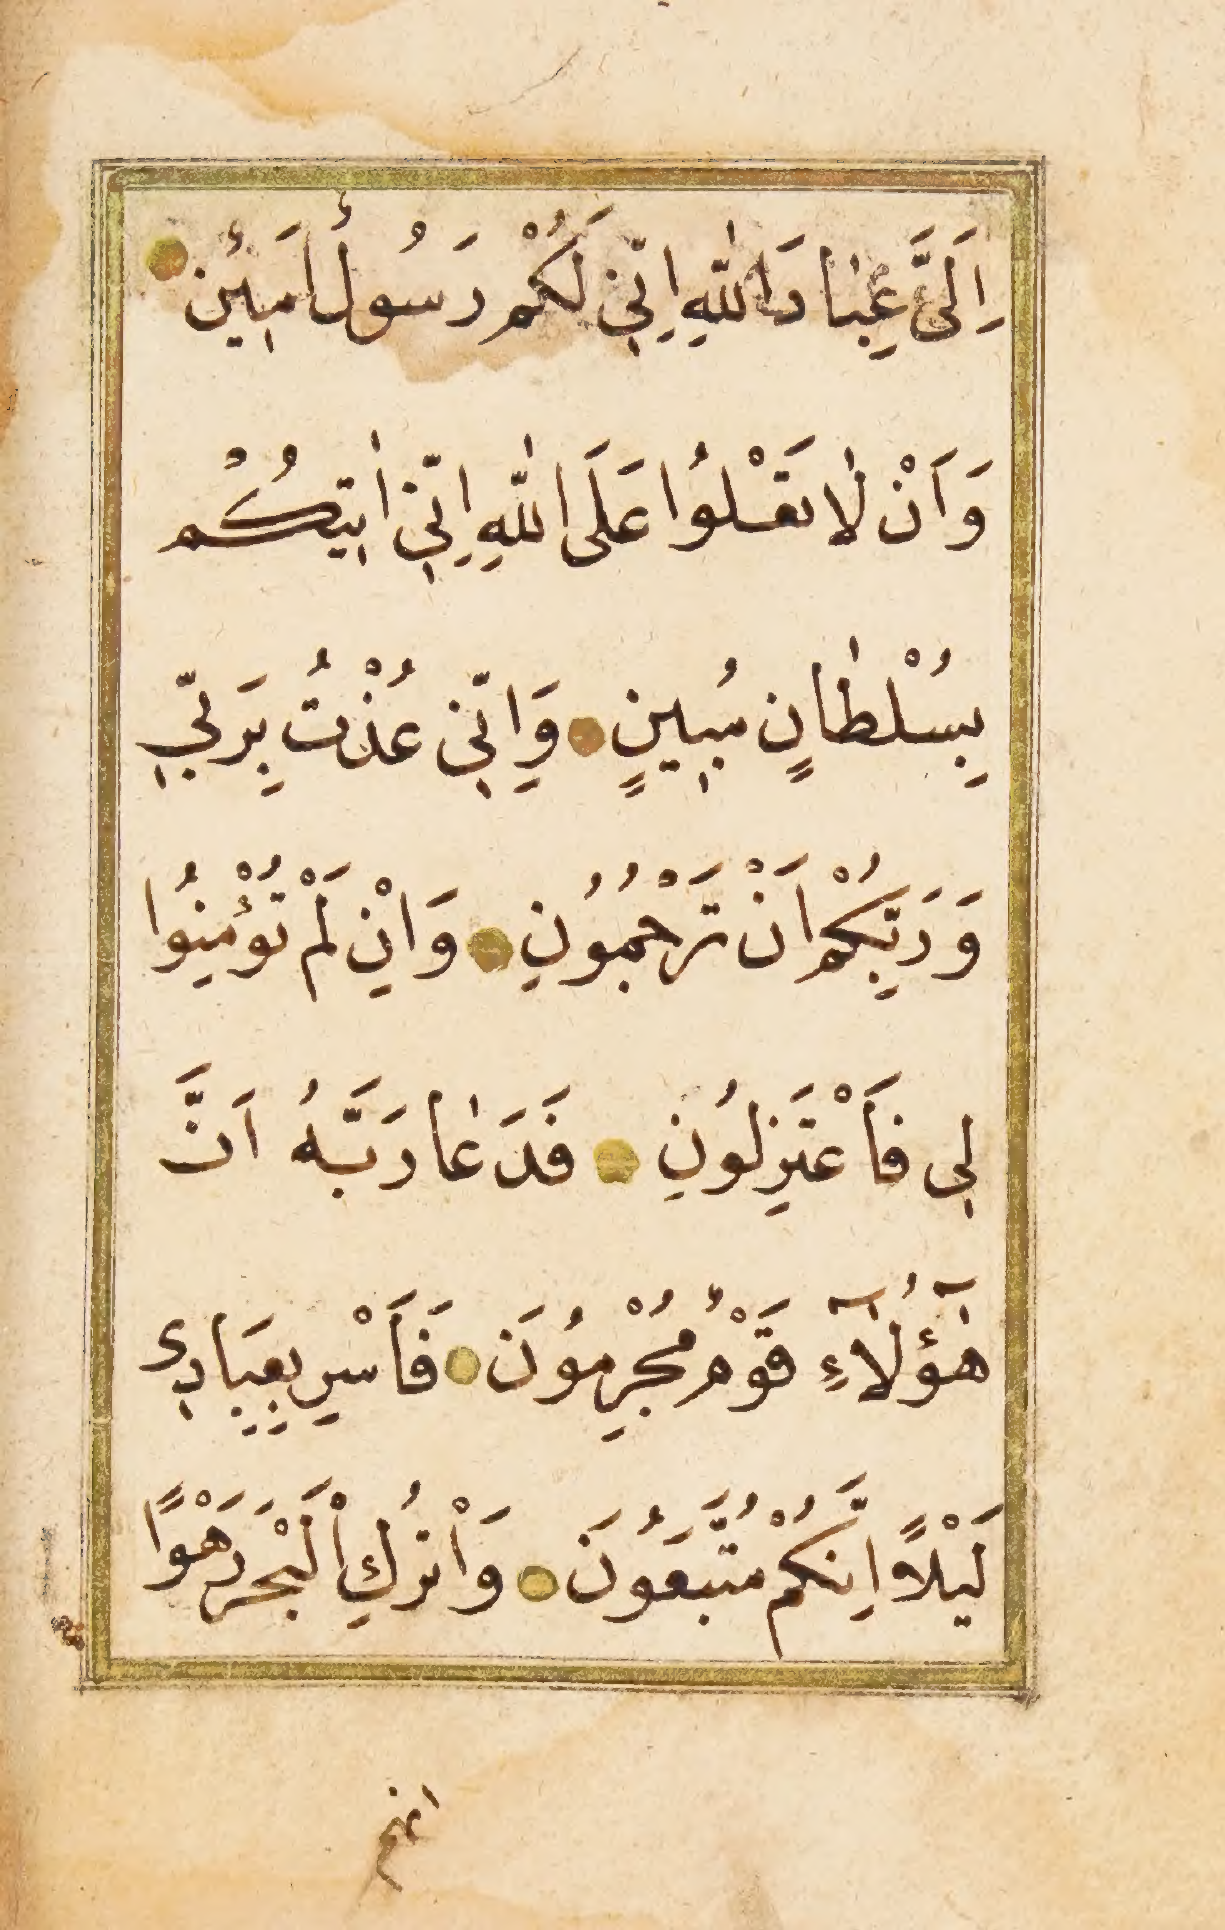 اِلَىَّ عِبٰادَ اللّٰهِ اِنّٖى لَكُمْ رَسُولٌ اَمٖينٌ
وَاَنْ لٰا تَعْلُوا عَلَى اللّٰهِ اِنّٖى اٰتٖيكُمْ
بِسُلْطٰانٍ مُبٖينٍ وَاِنّٖى عُذْتُ بِرَبّٖى
وَرَبِّكُمْ اَنْ تَرْجُمُونِ وَاِنْ لَمْ تُؤْمِنُوا
لٖى فَاعْتَزِلُونِ فَدَعٰا رَبَّهُ اَنَّ
هٰٓؤُلٰٓاءِ قَوْمٌ مُجْرِمُونَ فَاَسْرِ بِعِبَادٖى
لَيْلًا اِنَّكُمْ مُتَّبَعُونَ وَاتْرُكِ الْبَحْرَ رَهْوًا
انهم